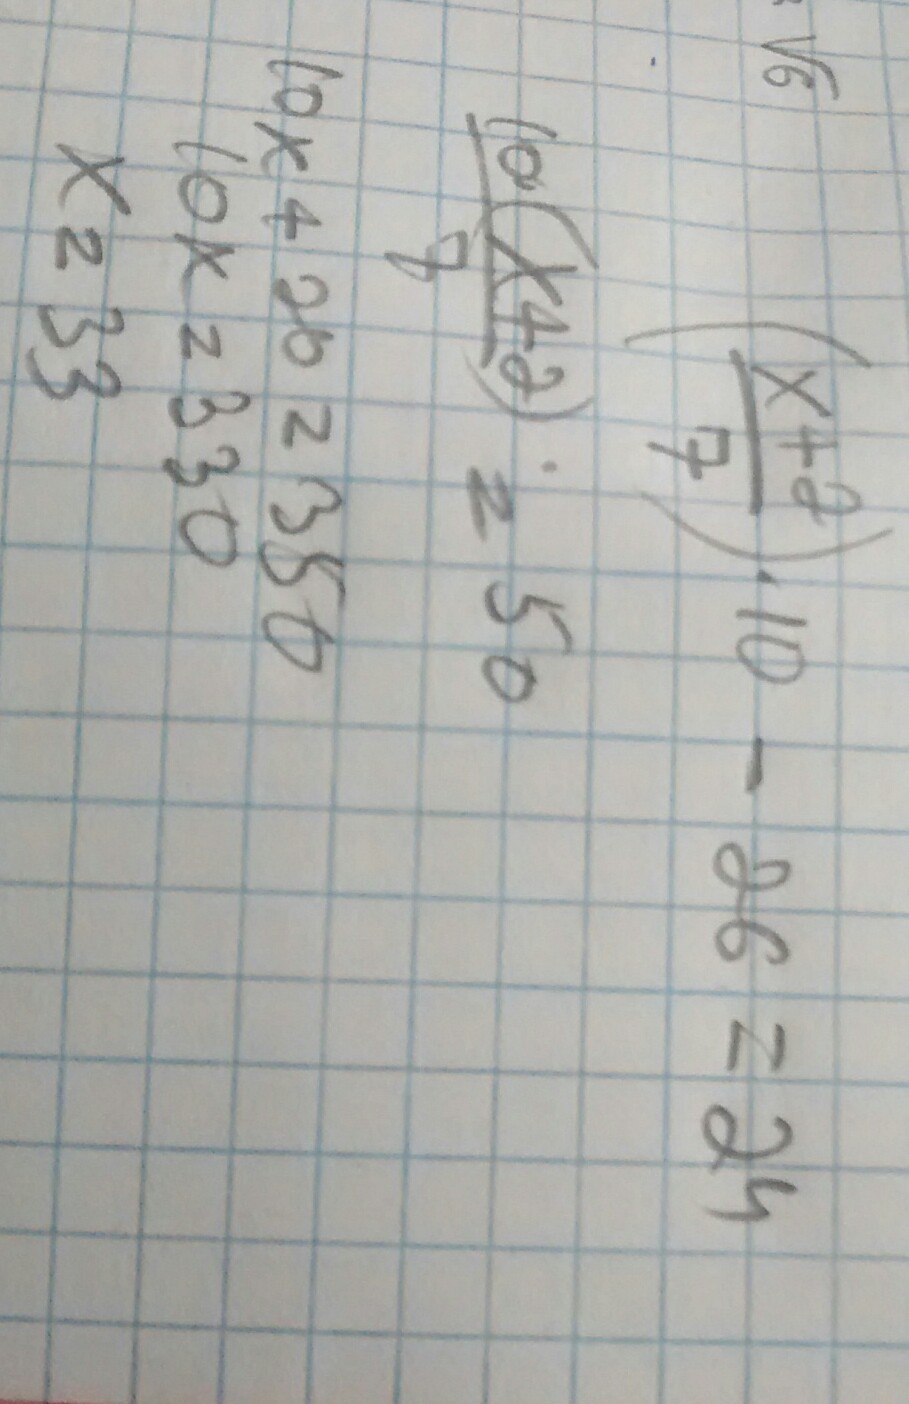 √6
((x+2)/7) · 10 - 26 = 24
10(x+2)/7 = 50
10x + 20 = 350
10x = 330
x = 33